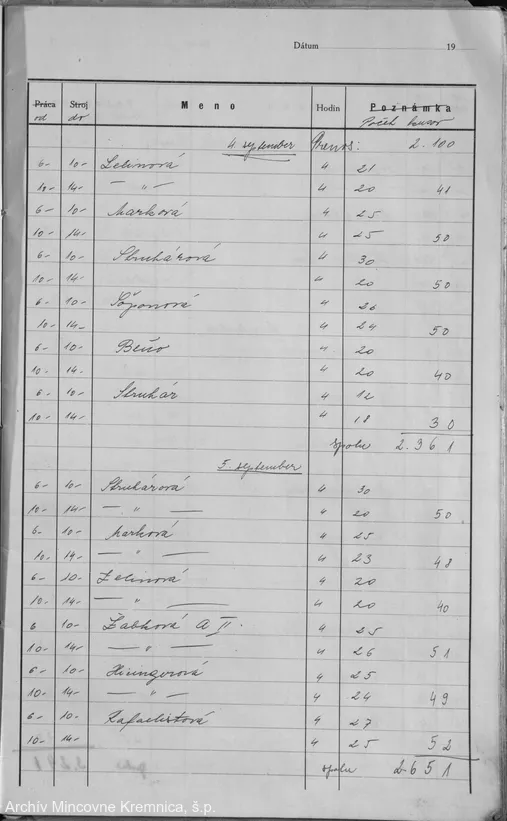 Dátum 19
Práca Stroj Meno Hodin Poznámka
od do Počet kusov
4. september Prenos: 2.100
6- 10- Zelinová 4 21
10- 14- — " — 4 20 41
6- 10- Marková 4 25
10- 14- 4 25 50
6- 10- Struhárová 4 30
10- 14- 4 20 50
6- 10- Šóponová 4 26
10- 14- 4 24 50
6- 10- Beňo 4 20
10- 14- 4 20 40
6- 10- Struhár 4 12
10- 14- 4 18 30
spolu 2.361
5. september
6- 10- Struhárová 4 30
10- 14- — " — 4 20 50
6- 10- Marková 4 25
10- 14- — " — 4 23 48
6- 10- Zelinová 4 20
10- 14- — " — 4 20 40
6 10- Žabková A II. 4 25
10- 14- — " — 4 26 51
6- 10- 4 25
10- 14- — " — 4 24 49
6- 10- Rafaelisová 4 27
10- 14- 4 25 52
spolu 2.651
Archív Mincovne Kremnica, š.p.